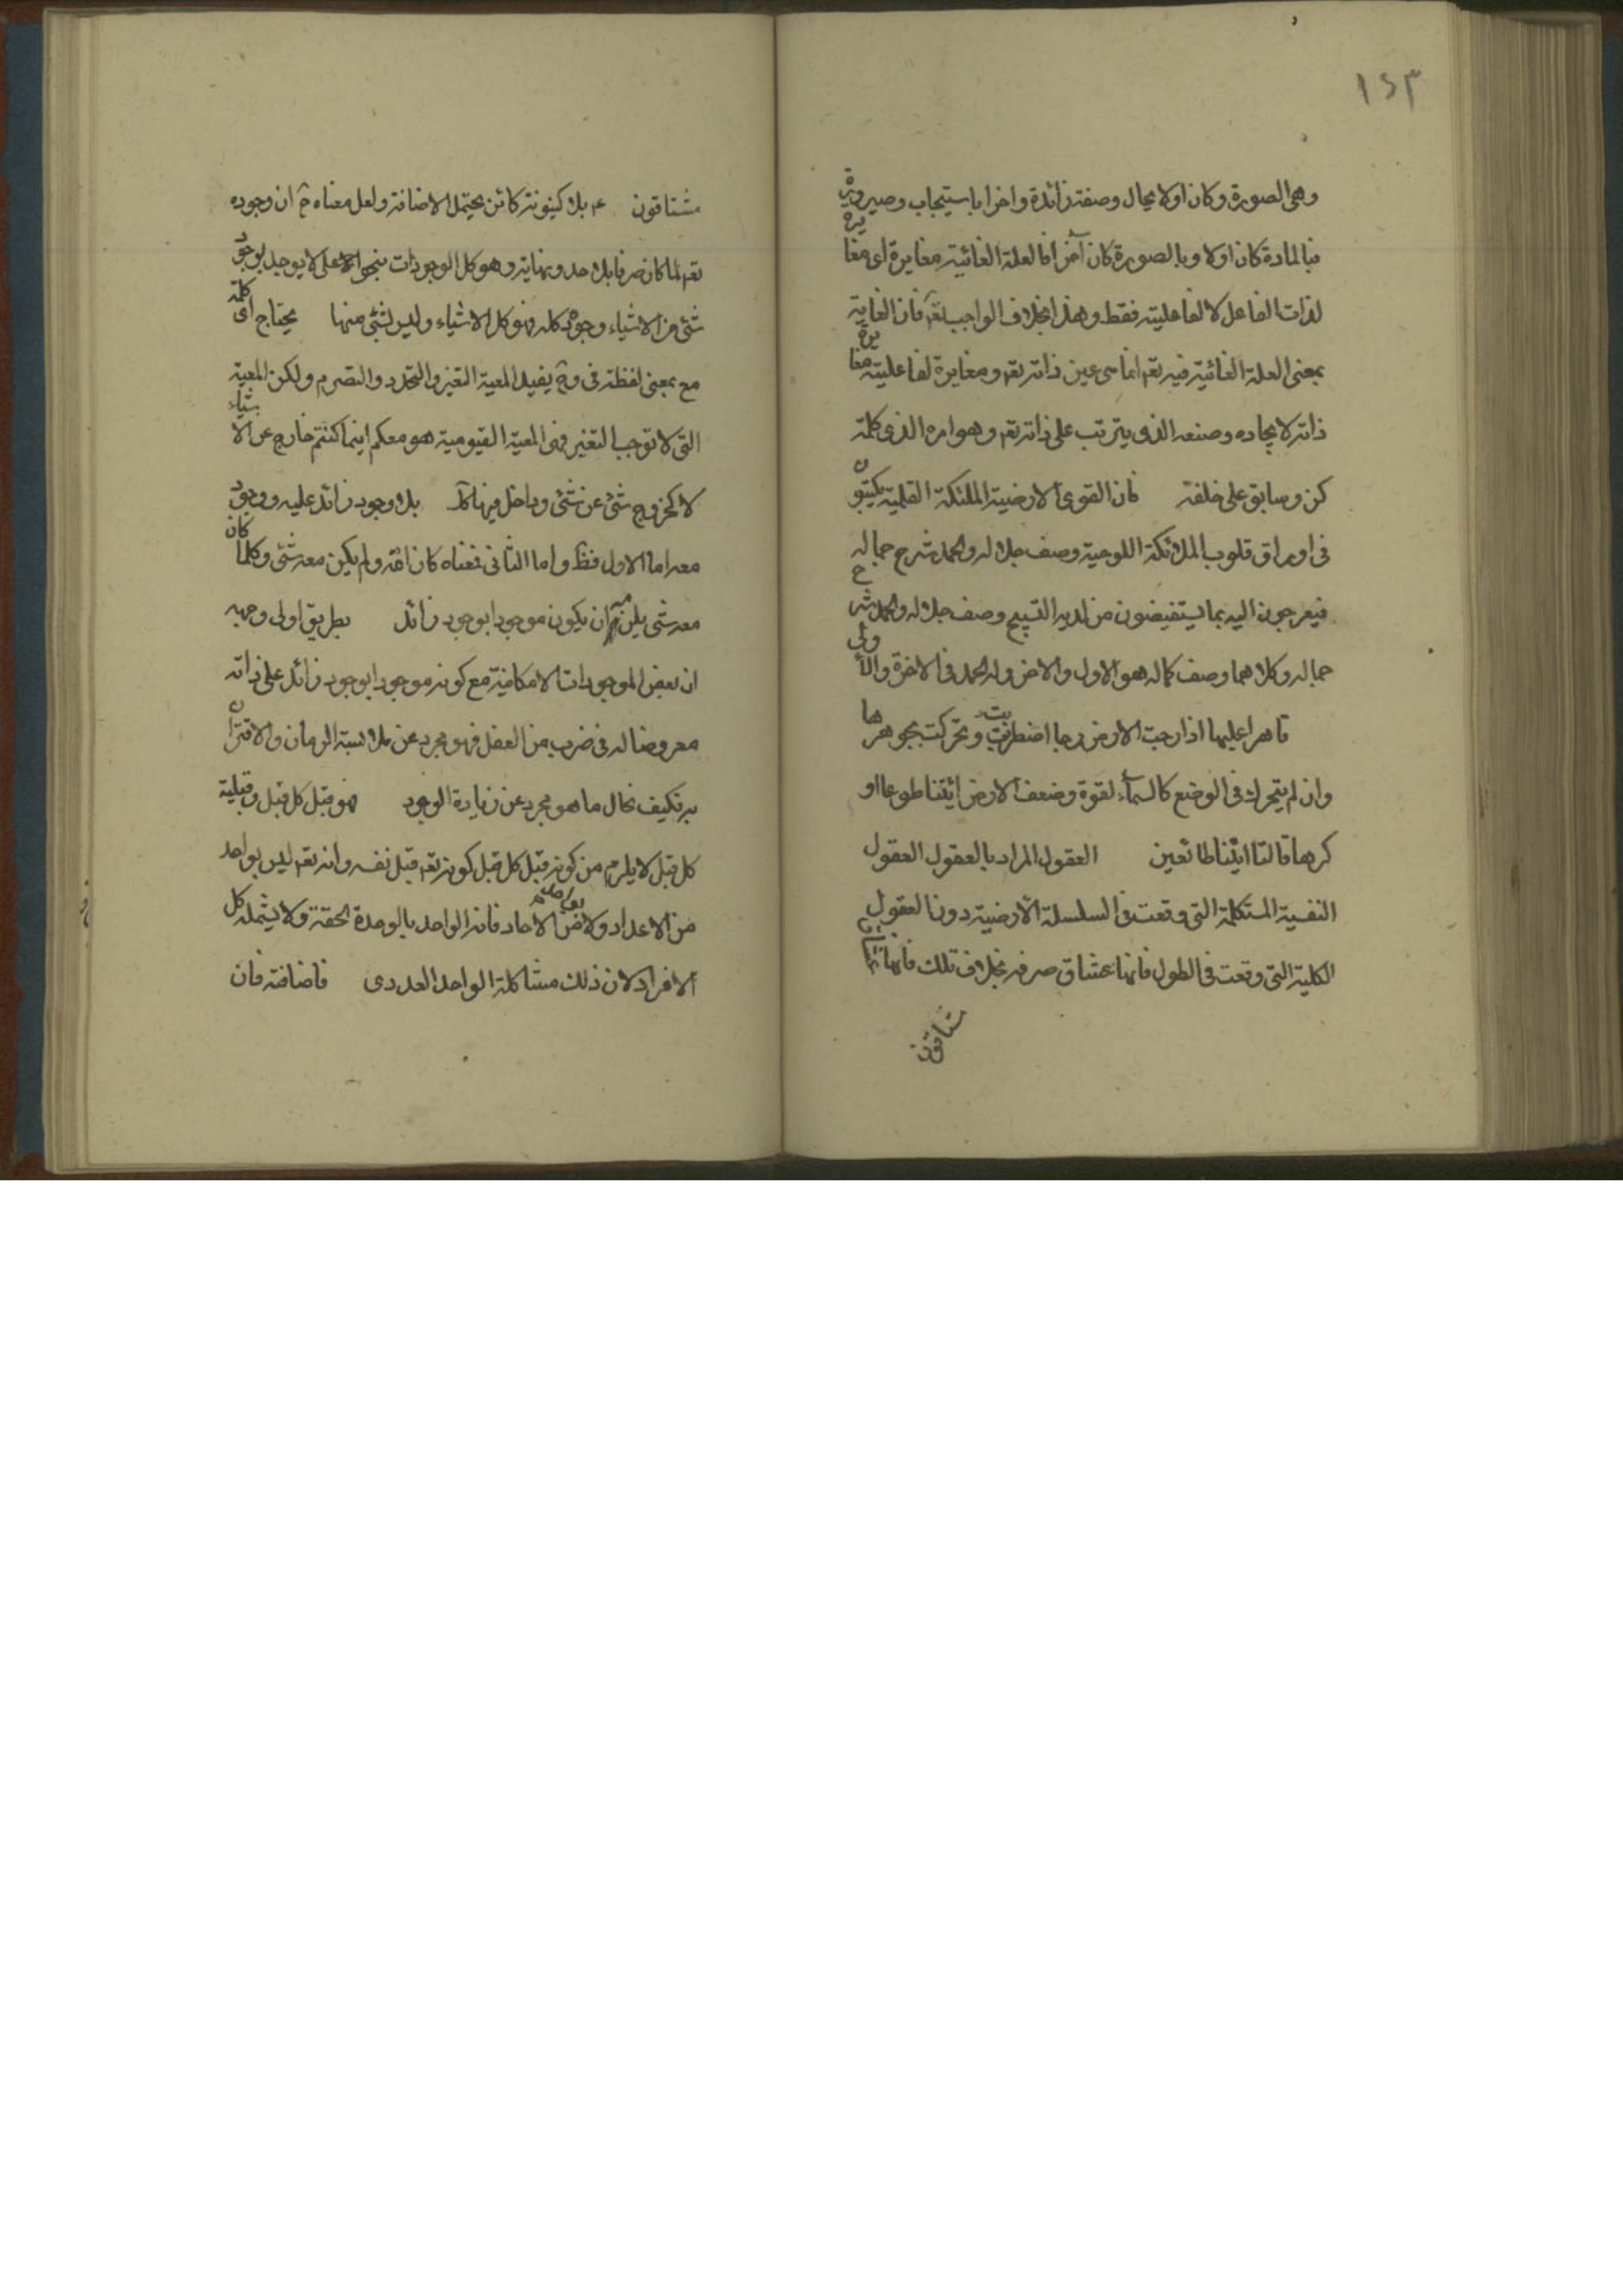 ١٤٣
وهی الصورة وکان اولا بحال وصفته زائدة واخرا باستیجاب وصیرورته
فبالمادة کان اولا وبالصورة کان آخرا فالعلة الغائیة مغایرة ای مغایرة
لذات الفاعل لا لفاعلیته فقط وهذا بخلاف الواجب تعه فان الغایة
بمعنی العلة الغائیة فیه تعه انما هی عین ذاته تعه ومغایرة لفاعلیته مغایرة
ذاته لایجاده وصنعه الذی یترتب علی ذاته تعه وهو امره الذی کلمة
کن وسابق علی خلقه فان القوی الارضیة الملئکة القلمیة یکتبون
فی اوراق قلوب الملائکة اللوحیة وصف جلاله والحمد شرح جماله
فیعرجون الیه بما یستفیضون من لدیه التسبیح وصف جلاله والحمد شرح
جماله وکلاهما وصف کماله هو الاول والاخر وله الحمد فی الاخرة والاولی
قاهرا علیها اذا رجت الارض رجا اضطربت وتحرکت بجوهرها
وان لم یتحرک فی الوضع کالسمآء لقوة وضعف الارض ائتنا طوعا او
کرها قالتا اتینا طائعین العقول المراد بالعقول العقول
النفسیة المستکملة التی وقعت فی السلسلة الارضیة دون العقول
الکلیة التی وقعت فی الطول فانها عشاق صرفه بخلاف تلک فانها
مشتاقون
مشتاقون بلا کینونة کائن یحتمل الاضافة ولعل معناه ح ان وجوده
تعه لما کان صرفا بلا حد ونهایة وهو کل الوجودات بنحو اعلی لا یوجد بوجود
شئ من الاشیاء وجوده کله فهو کل الاشیاء ولیس بشئ منها یحتاج ای کلمة
مع بمعنی لفظة فی وح یفید المعیة التغیر والتجدد والتصرم ولکن المعیة
التی لا توجب التغیر فهی المعیة القیومیة هو معکم اینما کنتم خارج عن الاشیاء
لا کخروج شئ عن شئ وداخل فیها بلا وجود زائد علیه ووجود
معه اما الاول فظ واما الثانی فمعناه کان الله ولم یکن معه شئ وکلما کان
معه شئ یلزم ان یکون موجودا بوجود زائد بطریق اولی وجهه
ان بعض الموجودات الامکانیة مع کونه موجودا بوجود زائد علی ذاته
معروضا له فی ضرب من العقل فهو مجرد عن ملابسة الزمان والاقتران
به فکیف بحال ما هو مجرد عن زیادة الوجود فهو قبل کل قبل وقبلیة
کل قبل لا یلزم من کونه قبل کل قبل کونه تعه قبل نفسه وانه تعه لیس بواحد
من الاعداد ولا من الاحاد فانه الواحد بالوحدة الحقة ولا یشمله کل
الافراد لان ذلک مشاکلة الواحد العددی فاضافته فان